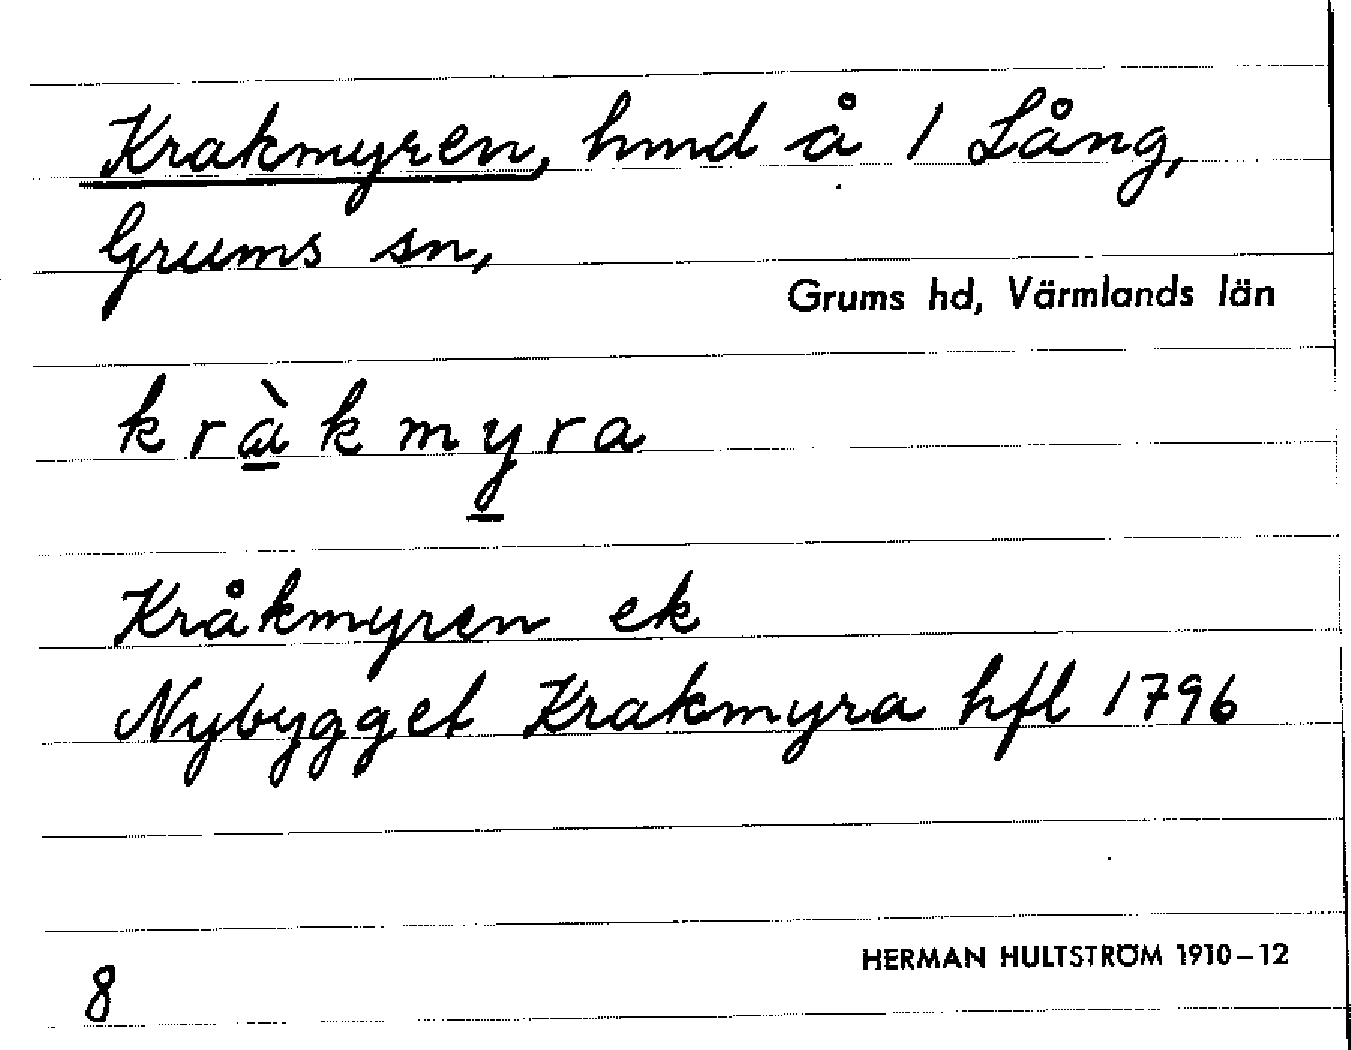 Krakmyren, hmd å 1 Lång,
Grums sn,
Grums hd, Värmlands län
kràkmyra
Kråkmyren ek
Nybygget Krakmyra hfl 1796
HERMAN HULTSTRÖM 1910–12
8